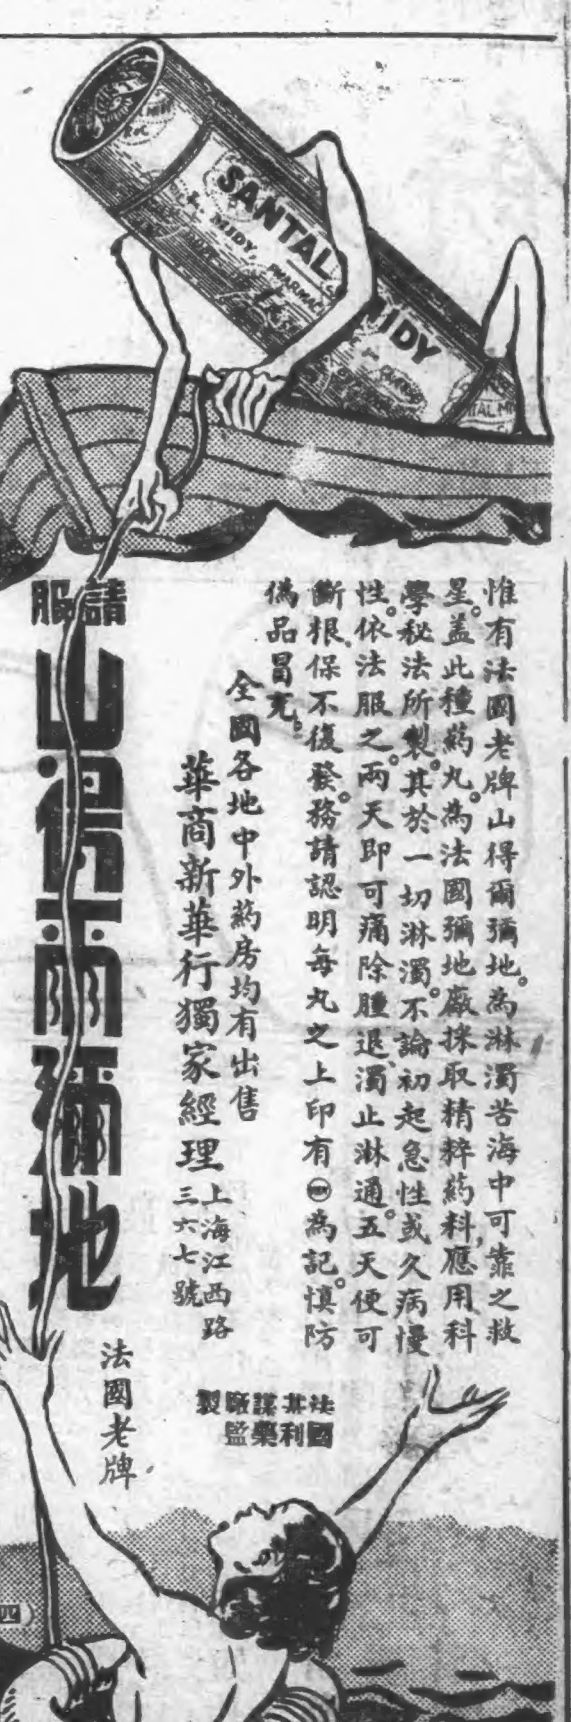 SANTAL MIDY
MIDY, PHARMAC
惟有法國老牌山得爾彌地。為淋濁苦海中可靠之救
星。蓋此種葯丸。為法國彌地廠採取精粹葯料，應用科
學秘法所製。其於一切淋濁。不論初起急性或久病慢
性。依法服之。兩天即可痛除腫退、濁止淋通。五天便可
斷根、保不復發。務請認明每丸之上印有為記。慎防
偽品冒充。
全國各地中外葯房均有出售
華商新華行獨家經理
上海江西路
三六七號
請服
山得爾彌地
法國老牌
法國非利謀藥廠監製
四